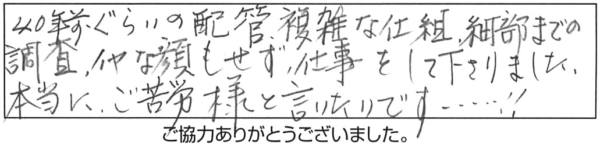 40年前ぐらいの配管、複雑な仕組、細部までの
調査、イヤな顔もせず、仕事をして下さりました、
本当に、ご苦労様と言いたいです……!!
ご協力ありがとうございました。